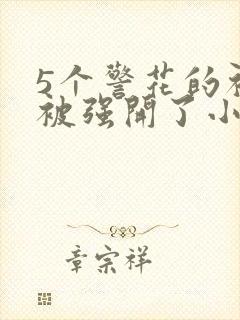 5个警花的被
被强开了小
章宗祥